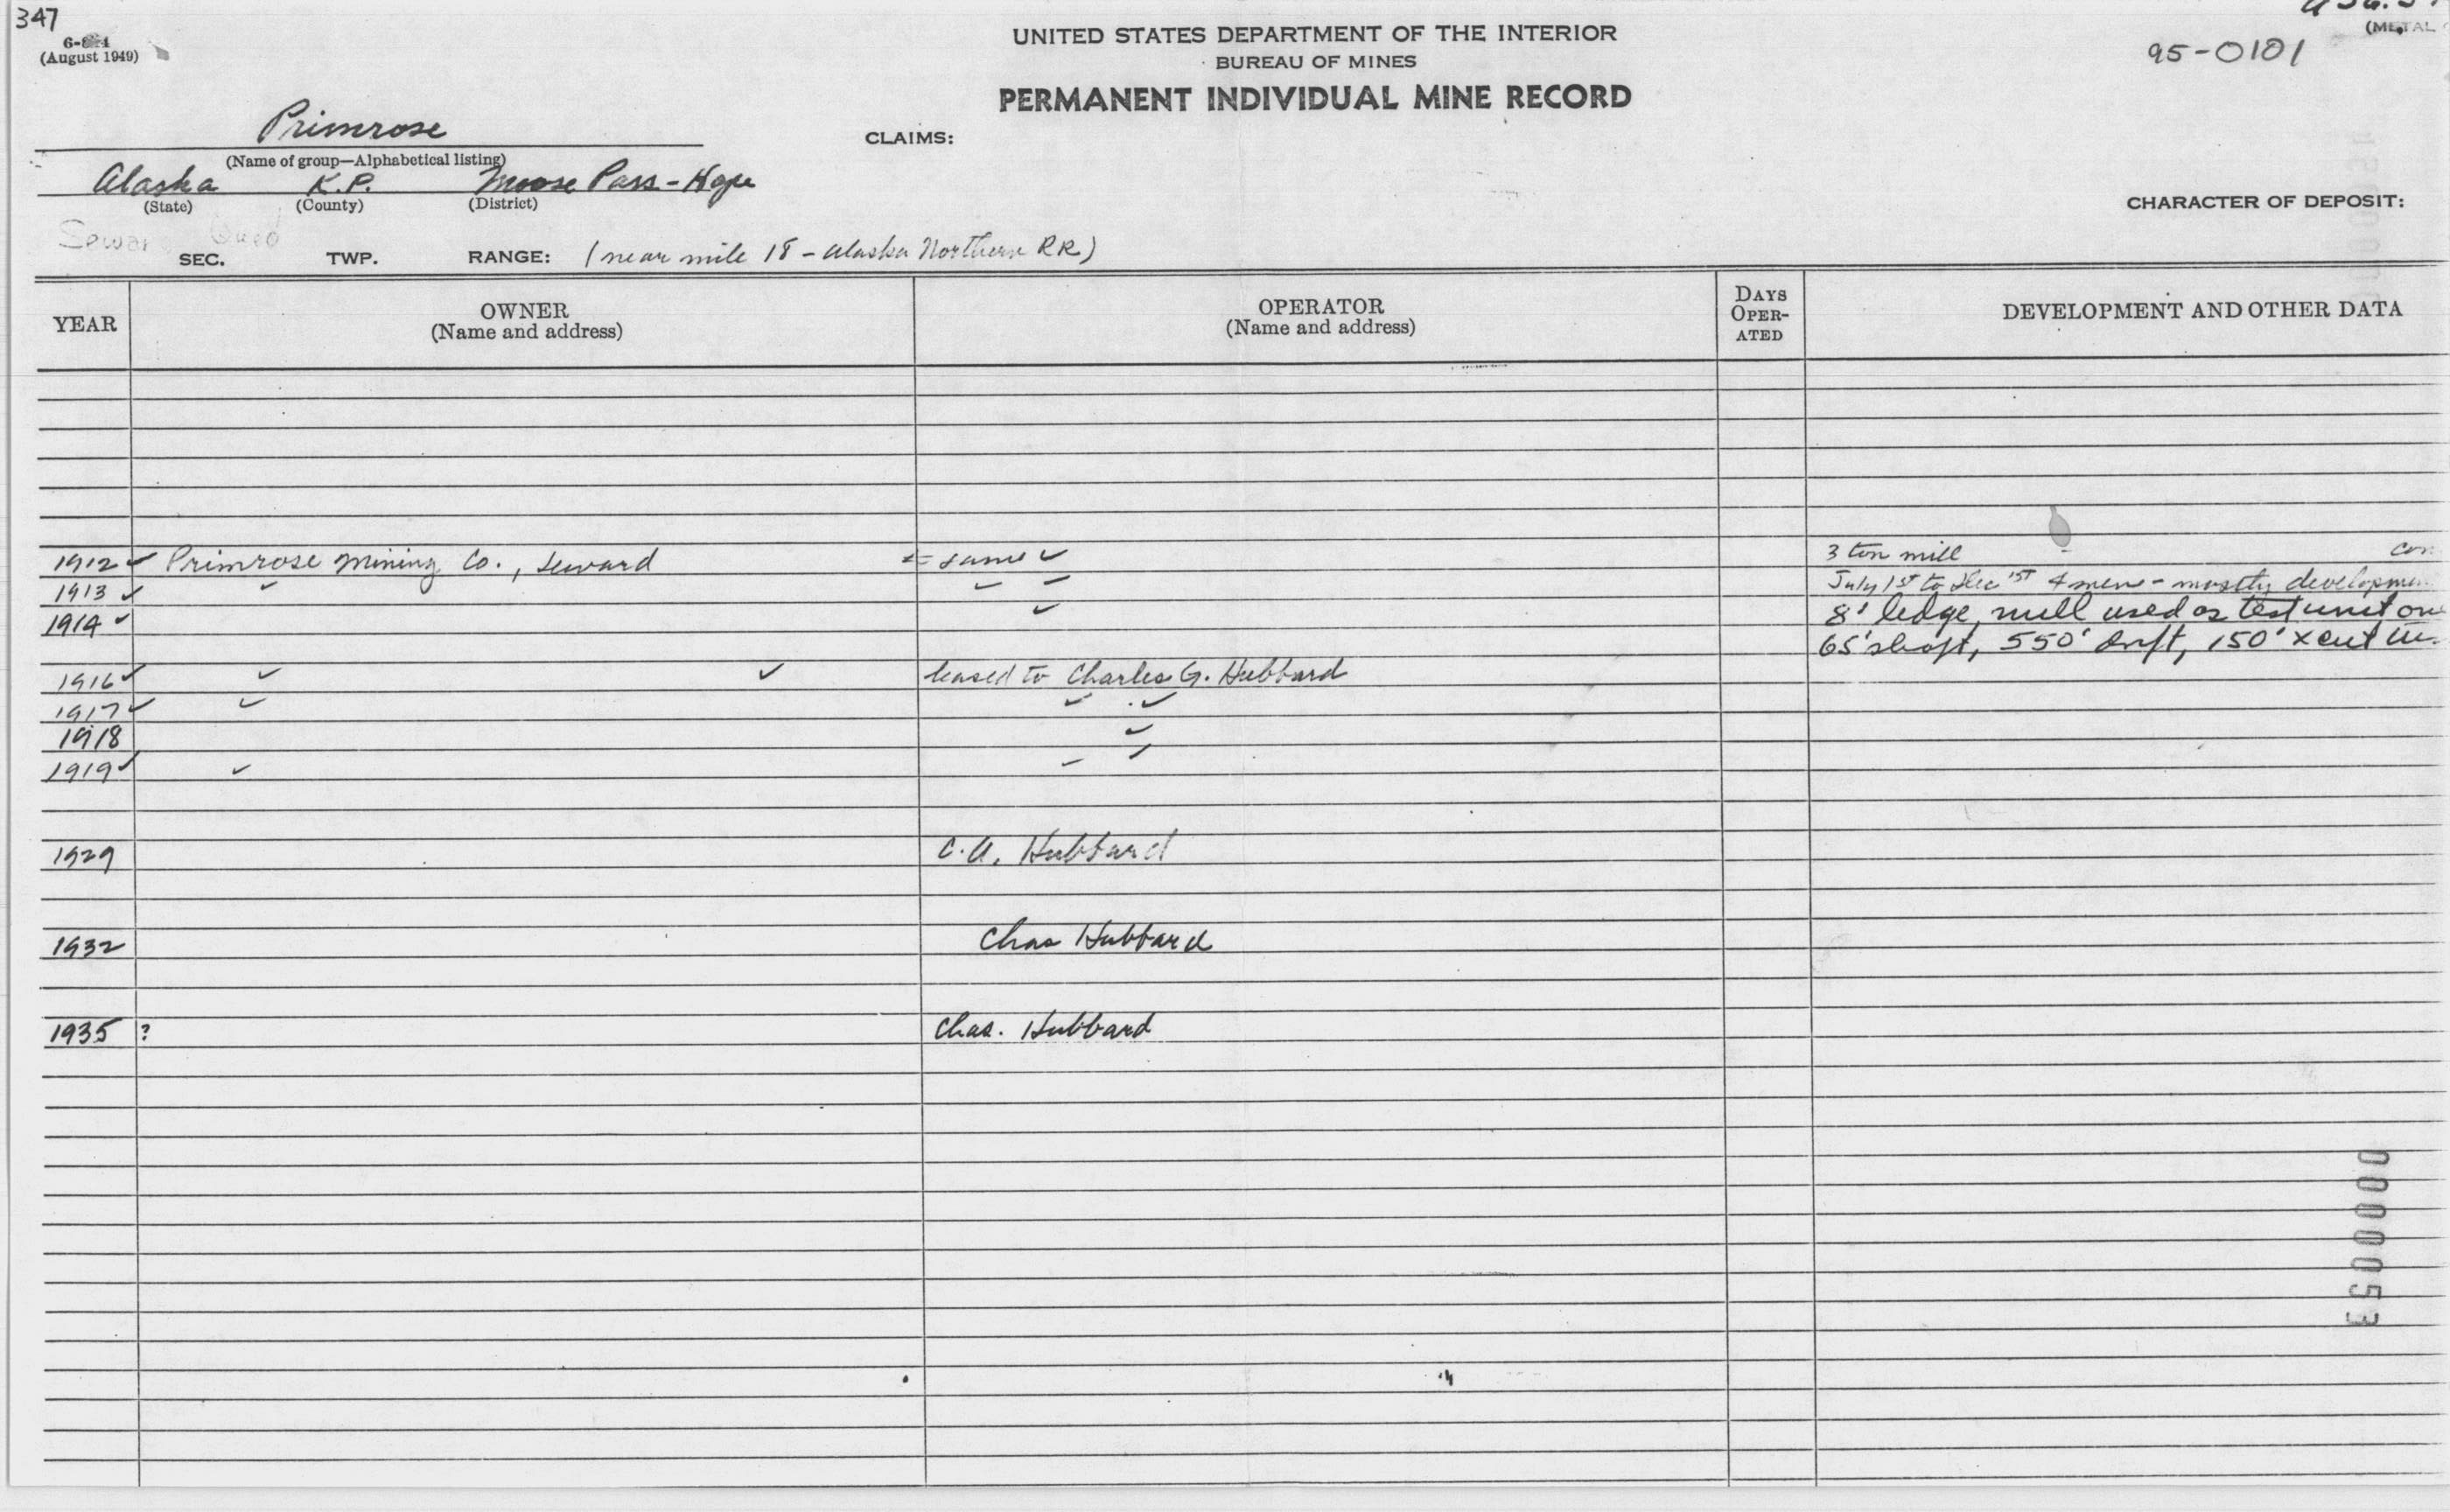 347
(August 1949)
UNITED STATES DEPARTMENT OF THE INTERIOR
BUREAU OF MINES
PERMANENT INDIVIDUAL MINE RECORD
(METAL
95-0101
Primrose
(Name of group—Alphabetical listing)
CLAIMS:
Alaska K.P. Moose Pass - Hope
(State) (County) (District)
CHARACTER OF DEPOSIT:
Seward Quad
SEC. TWP. RANGE: (near mile 18 - Alaska Northern RR)
YEAR
OWNER
(Name and address)
OPERATOR
(Name and address)
DAYS
OPER-
ATED
DEVELOPMENT AND OTHER DATA
1912 ✓ Primrose Mining Co., Seward = same ✓ 3 ton mill
1913 ✓ ✓ ✓ ✓ July 1st to Dec 1st 4 men - mostly developmen
1914 ✓ ✓ 8' ledge, mill used as test unit
65' shaft, 550' drift, 150' xcut
1916 ✓ ✓ ✓ leased to Charles G. Hubbard
1917 ✓ ✓ ✓ ✓
1918 ✓
1919 ✓ ✓ ✓ ✓
1929 C.A. Hubbard
1932 Chas Hubbard
1935 ? Chas. Hubbard
0000053